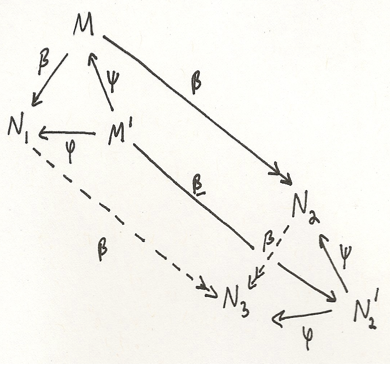 M
β ψ β
N₁ M'
φ
β̲
N₂
β β
ψ
N₃ N₂'
φ